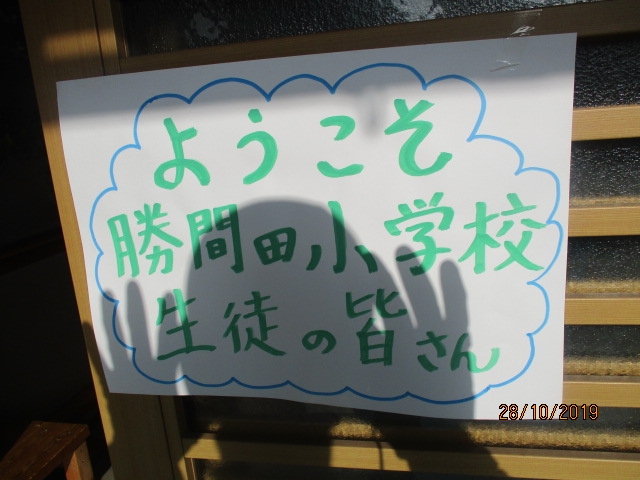 ようこそ
勝間田小学校
生徒の皆さん
28/10/2019